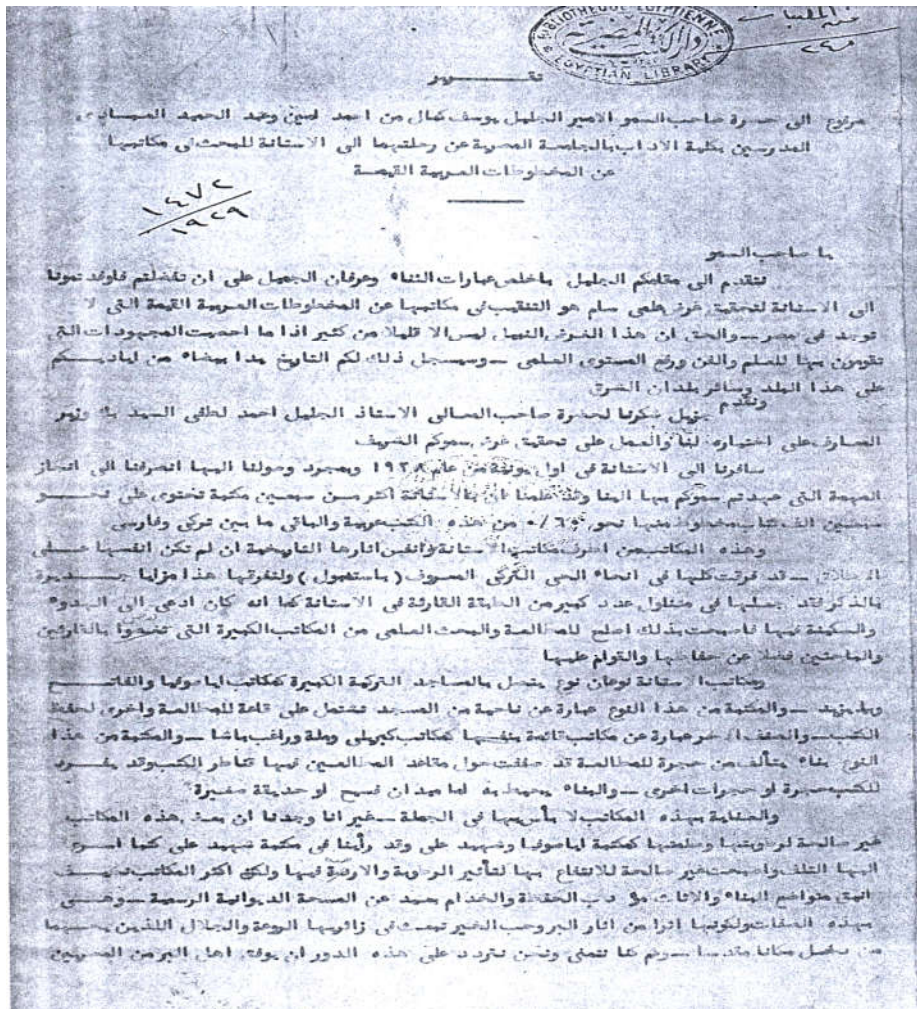 BIBLIOTHEQUE EGYPTIENNE
دار الكتب المصرية
EGYPTIAN LIBRARY
تقـــــرير
مرفوع الى حضرة صاحب السمو الامير الجليل يوسف كمال من احمد امين وعبد الحميد العبادى
المدرسين بكلية الاداب بالجامعة المصرية عن رحلتهما الى الاستانة للبحث فى مكاتبها
عن المخطوطات العربية القيمة
١٤٧٢
١٩٢٩
يا صاحب السمو
نتقدم الى مقامكم الجليل باخلص عبارات الثناء وعرفان الجميل على ان تفضلتم فاوفدتمونا
الى الاستانة لتحقيق غرض علمى سام هو التنقيب فى مكاتبها عن المخطوطات العربية القيمة التى لا
توجد فى مصر ــ والحق ان هذا الغرض النبيل ليس الا قليلا من كثير اذا ما احصيت المجهودات التى
تقومون بها للعلم والفن ورفع المستوى العلمى ــ وسيسجل ذلك لكم التاريخ يدا بيضاء من اياديـــكم
على هذا البلد وسائر بلدان الشرق
ونقدم جزيل شكرنا لحضرة صاحب المعالى الاستاذ الجليل احمد لطفى السيد بك وزير
المعارف على اختياره لنا والعمل على تحقيق غرض سموكم الشريف
سافرنا الى الاستانة فى اول يونية من عام ١٩٢٨ وبمجرد وصولنا اليها انصرفنا الى انجاز
المهمة التى عهدتم سموكم بها الينا وقد علمنا ان بالاستانة اكثر مـن سبعين مكتبة تحتوى على نحـــو
سبعين الف كتاب مخطوط منها نحو ٦٥ ٠/٠ من هذه الكتب عربية والباقى ما بين تركى وفارسى
وهذه المكاتب من اطرف مكاتب الاستانة وانفس اثارها التاريخية ان لم تكن انفسها عـــلى
الاطلاق ــ قد فرقت كلها فى انحاء الحى التركى المعروف ( باستنبول ) ولتفرقها هذا مزايا جـــديرة
بالذكر فقد جعلها فى متناول عدد كبير من الطبقة القارئة فى الاستانة كما انه كان ادعى الى الهدوء
والسكينة فيها فاصبحت بذلك اصلح للمطالعة والبحث العلمى من المكاتب الكبيرة التى بالقارئين
والباحثين فضلا عن حفاظها والقوام عليها
ومكاتب الاستانة نوعان نوع يتصل بالمساجد التركية الكبيرة كمكاتب ايا صوفيا والفاتـــح
وبايزيد ــ والمكتبة من هذا النوع عبارة عن ناحية من المسجد تشتمل على قاعة للمطالعة واخرى لحفظ
الكتب ــ والصنف الاخر عبارة عن مكاتب قائمة بنفسها كمكاتب كبريلى وملة وراغب باشا ــ والمكتبة من هذا
النوع بناء يتألف من حجرة للمطالعة قد صففت حول مقاعد المطالعين فيها قناطر الكتب وقد يفـــرد
للكتب حجرة او حجرات اخرى ــ والبناء يحيط به اما ميدان فسيح او حديقة صغيرة
والعناية بهذه المكاتب لا بأس بها فى الجملة ــ غير انا وجدنا ان بعض هذه المكاتب
غير صالحة لرطوبتها وظلمتها كمكتبة ايا صوفيا وشهيد على وقد رأينا فى مكتبة شهيد على كتبا اسـرع
اليها التلف واصبحت غير صالحة للانتفاع بها لتأثير الرطوبة والارضة فيها ولكن اكثر المكاتب نظيـــف
انيق متواضع البناء والاثاث داب الحفظة والخدام بعيد عن الصبغة الديوانية الرسمية ــ وهـــى
بهذه الصفات ولكونها اثرا من اثار البر وحب الخير تبعث فى زائريها الروعة والجلال اللذين يحسهما
من يدخل مكانا مقدسا ــ وكم كنا نتمنى ونحن نتردد على هذه الدور ان يوفق اهل البر من المصريين